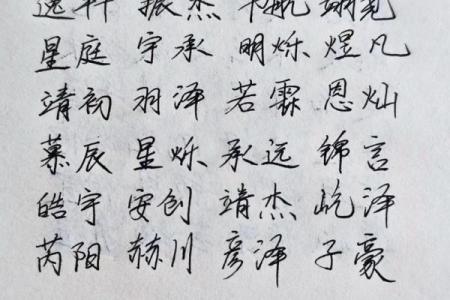 逸轩 振杰 卡航 翊尧
星庭 宇承 明烁 煜凡
靖初 羽泽 若霖 恩灿
慕辰 星烁 承远 锦言
皓宇 安创 靖杰 屹泽
芮阳 赫川 彦泽 子豪